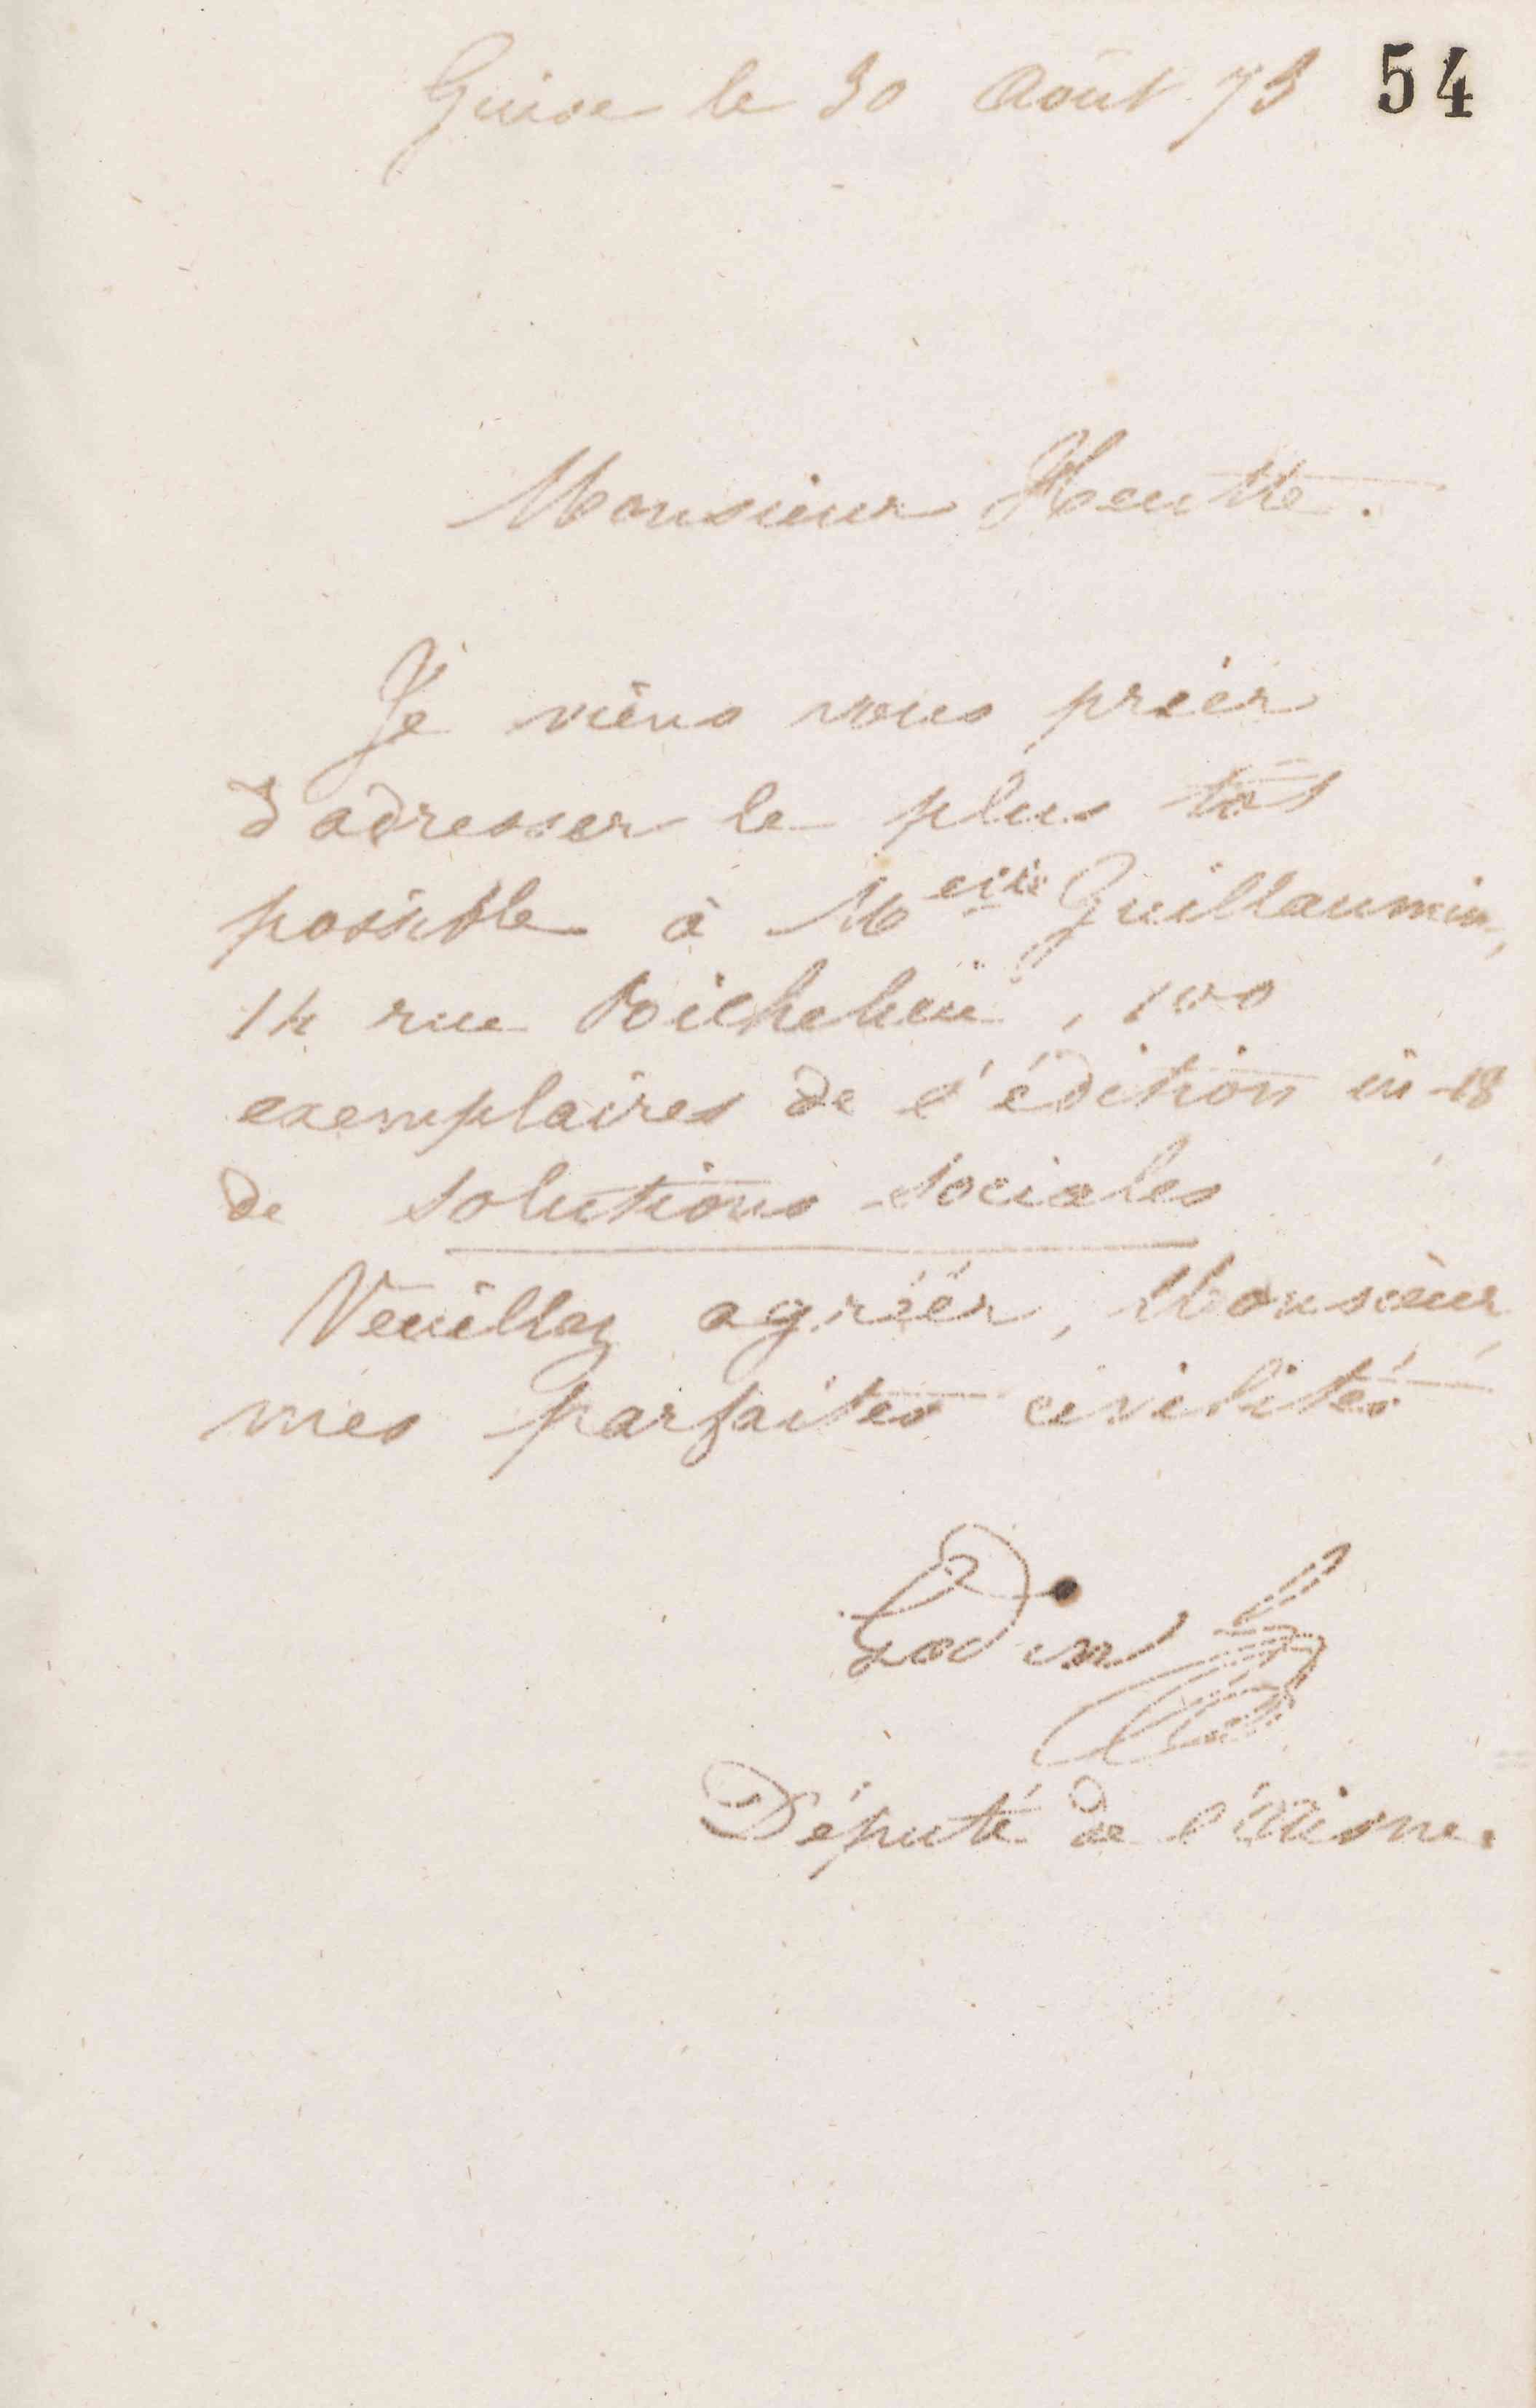 Guise le 30 Août 73 54
Monsieur Heutte.
Je viens vous prier
d'adresser le plus tôt
possible à Melle Guillaumin,
14 rue Richelieu, 100
exemplaires de l'édition in-18
de Solutions sociales
Veuillez agréer, Monsieur,
mes parfaites civilités
Godin
Député de l'Aisne.